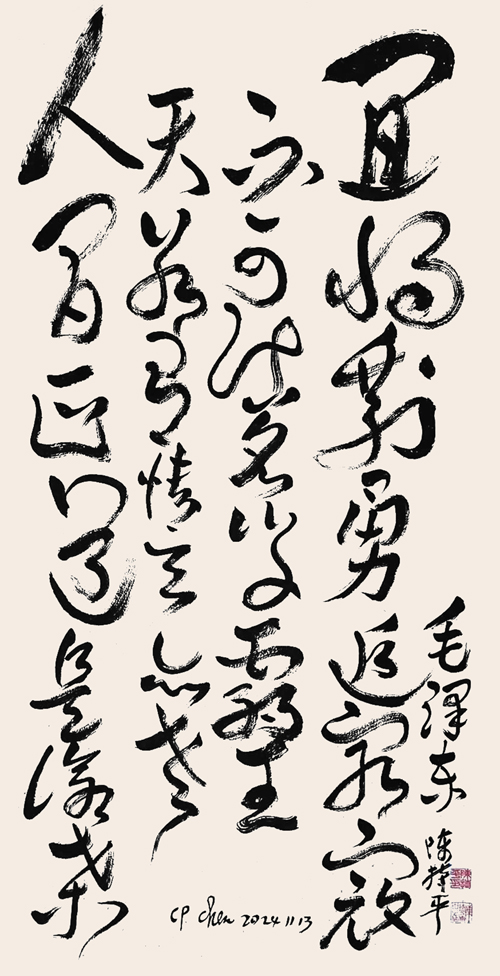 宜将剩勇追穷寇
不可沽名学霸王
天若有情天亦老
人间正道是沧桑
毛泽东
陈 平
CP Chen 2024 11 13